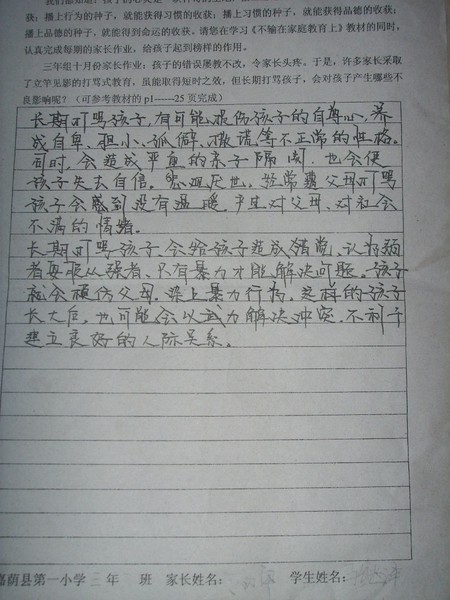 获；播上行为的种子，就能获得习惯的收获；播上习惯的种子，就能获得品德的收获；
播上品德的种子，就能得到命运的收获。请您在学习《不输在家庭教育上》教材的同时，
认真完成每期的家长作业，给孩子起到榜样的作用。
三年组十月份家长作业：孩子的错误屡教不改，令家长头疼。于是，许多家长采取
了立竿见影的打骂式教育，虽能取得短时之效，但长期打骂孩子，会对孩子产生哪些不
良影响呢？（可参考教材的 p1------25 页完成）
长期打骂孩子，有可能损伤孩子的自尊心，养
成自卑、胆小、孤僻、撒谎等不正常的性格。
同时，会造成严重的亲子隔阂，也会使
孩子失去自信，悲观厌世。经常遭父母打骂
孩子会感到没有温暖，产生对父母、对社会
不满的情绪。
长期打骂孩子，会给孩子造成错觉，认为弱
者要服从强者、只有暴力才能解决问题。孩子
就会模仿父母，染上暴力行为。这样的孩子
长大后，也可能会以武力解决冲突，不利于
建立良好的人际关系。
嘉荫县第一小学 三 年 班 家长姓名： 学生姓名：